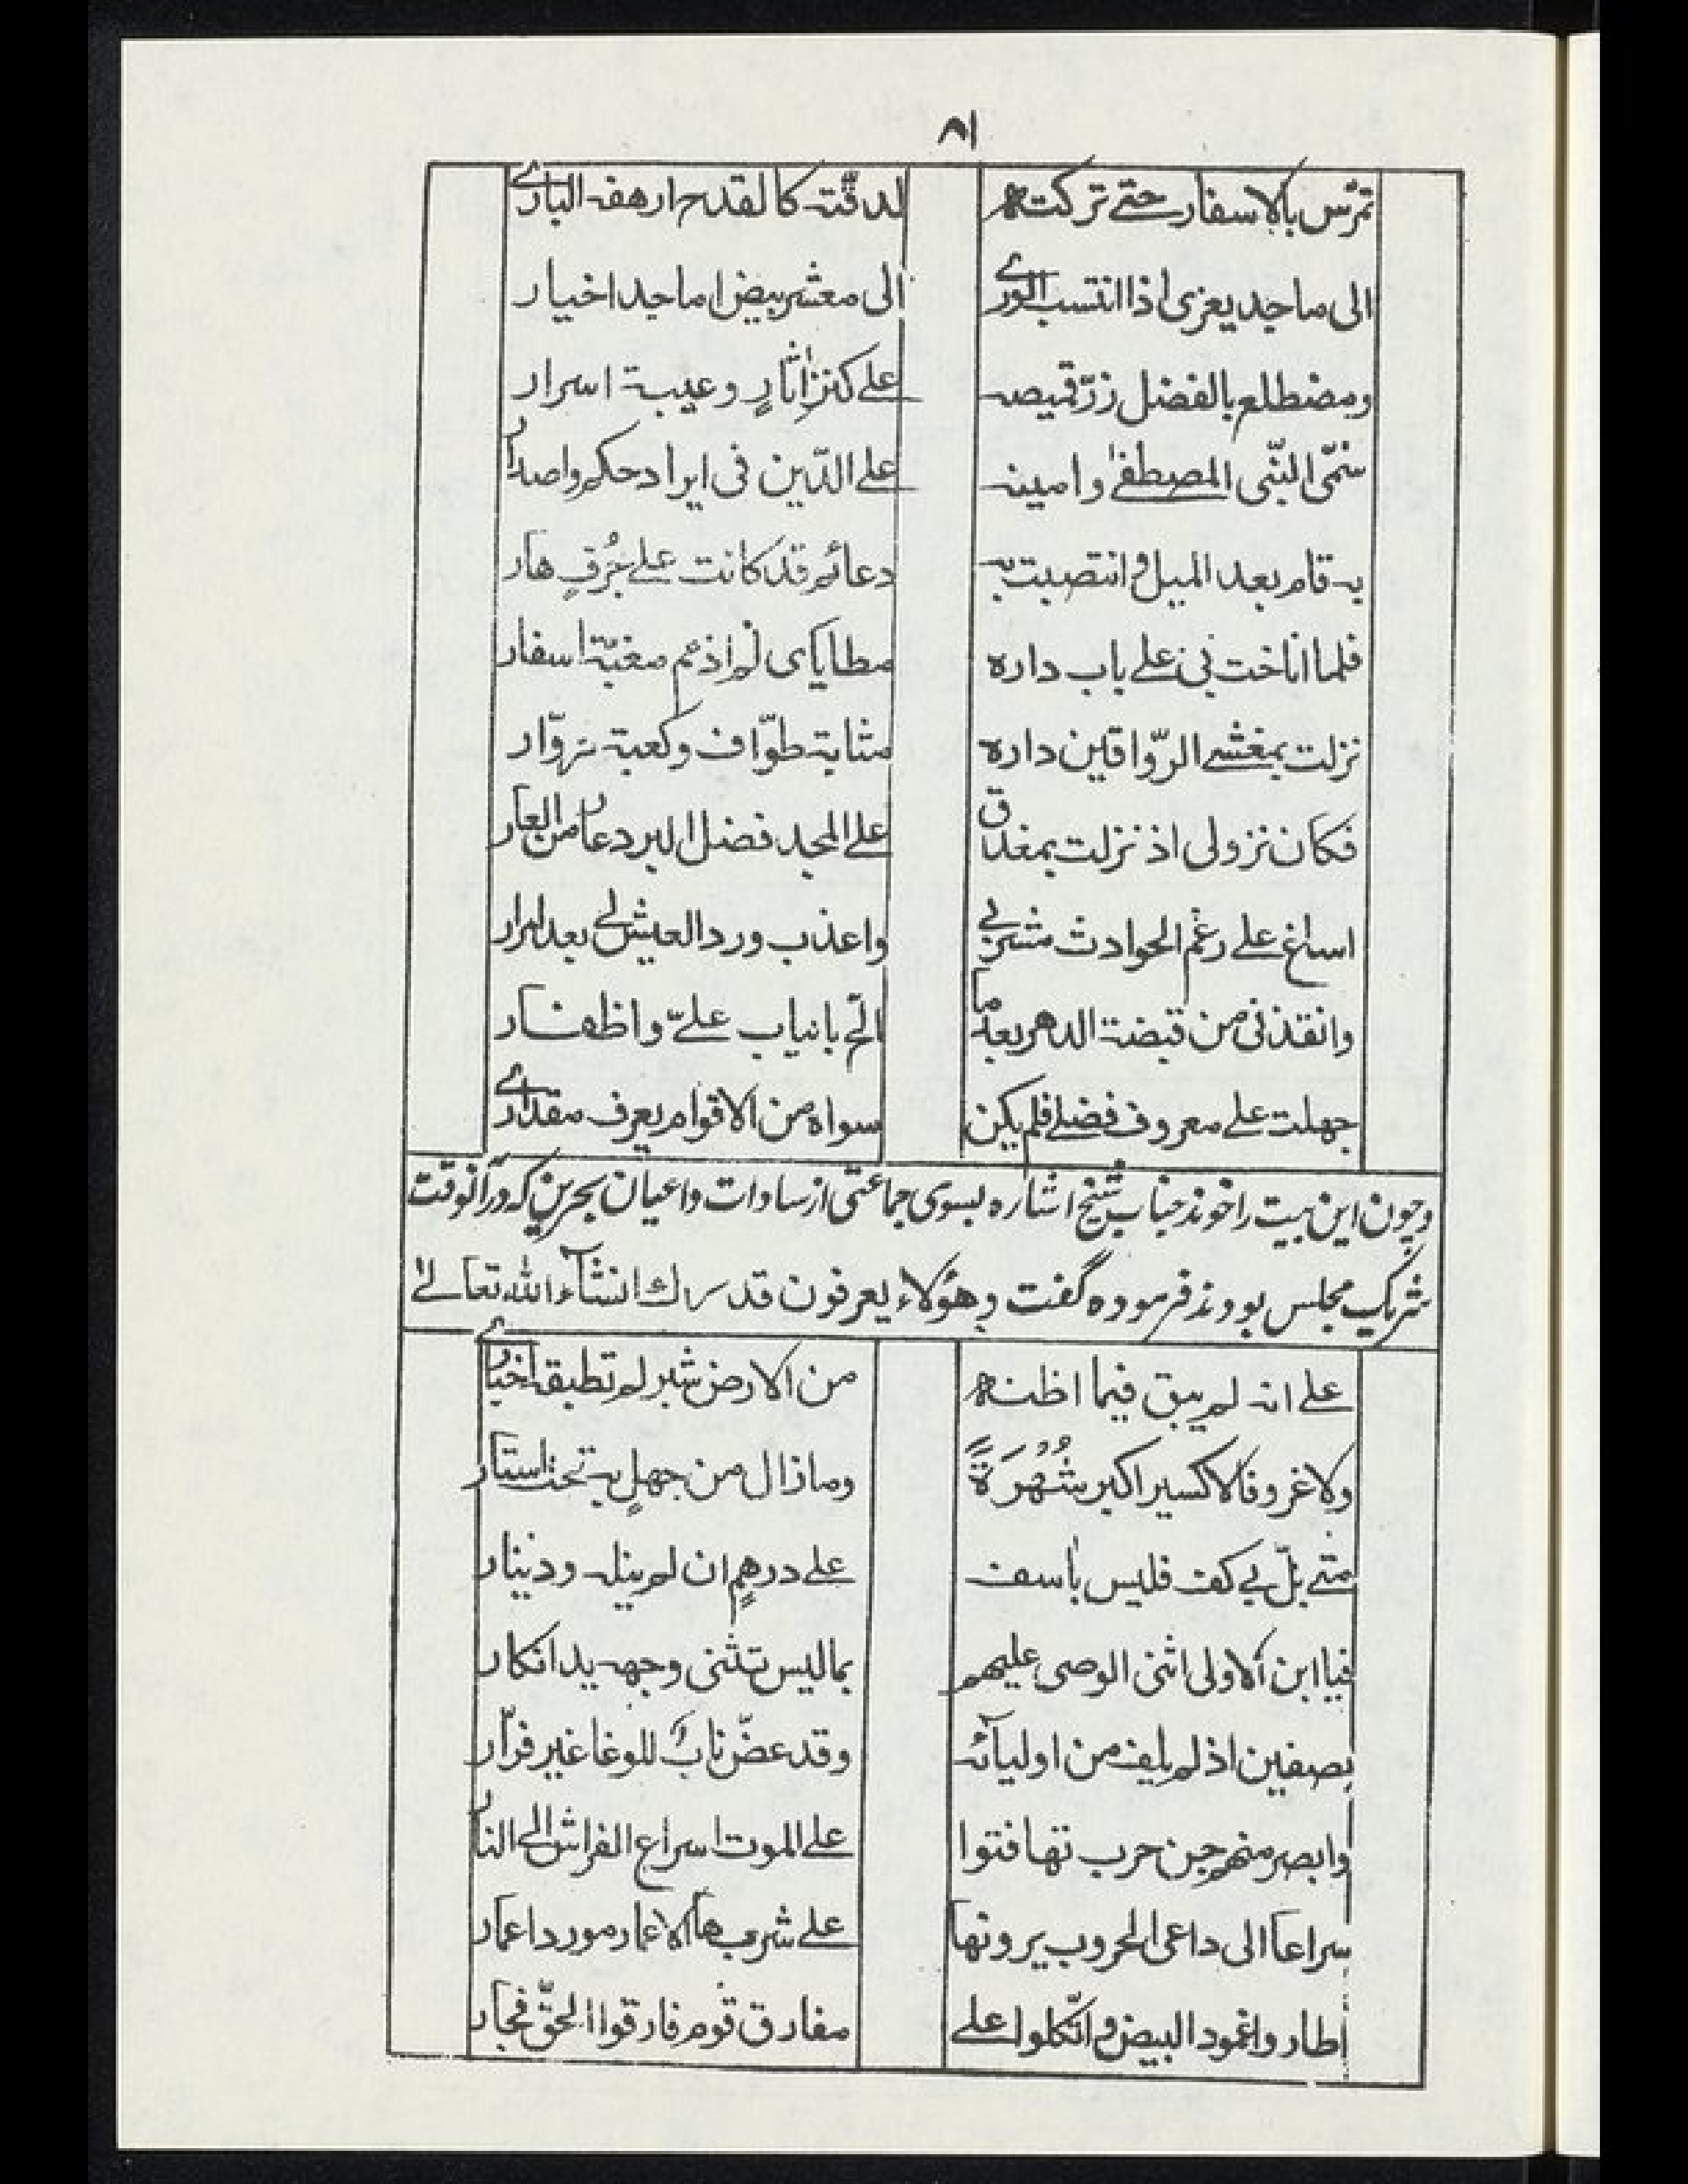 ٨١
تمرّس بالاسفار حتے تركتنه لدقّته كالقدح ارهفه البارے
الى ماجد يعزى اذا انتسب الورے الى معشر بيض اماجد اخيار
ومضطلع بالفضل زرّ قميصه علے كنز اٰثارٍ وعيبة اسرار
سمّى النّبى المصطفےٰ وامينه علے الدّين فى ايراد حكم واصدار
به قام بعد الميل وانتصبت به دعائم قد كانت علے جُرُفٍ هار
فلما اناخت بى علے باب داره مطاياى لم اذمم مغبّة اسفار
نزلت بمغشے الرّواقين داره مثابة طوّاف وكعبة زوّار
فكان نزولى اذ نزلت بمغدق علے المجد فضل البرد عار من العار
اساغ علے رغم الحوادث مشربے واعذب ورد العيش لے بعد امرار
وانقذنى من قبضة الدهر بعد ما الحّ بانياب علےّ واظفار
جهلت علے معروف فضلے فلم يكن سواه من الاقوام يعرف مقدارے
وچون اين بيت را خوند جناب شيخ اشاره بسوى جماعتى از سادات و اعيان بحرين كه در آنوقت
شريك مجلس بودند فرموده گفت وهؤلاء يعرفون قدرك انشآءالله تعالےٰ
علے انه لم يبق فيما اظنه من الارض شبر لم تطبقه اخبارے
ولا غرو فالاكسير اكبر شُهْرَةً وما زال من جهلٍ به تحت استار
متے بلّ لے كف فليس باسف علے درهمٍ ان لم ينله ودينار
فيا ابن الاولى اثنى الوصى عليهم بما ليس تثنى وجهه يد انكار
بصفين اذ لم يلف من اوليآئه وقد عضّ نابٌ للوغا غير فرّار
وابصر منهم جن حرب تهافتوا علے الموت اسراع الفراش الے النار
سراعا الى داعى الحروب يرونها علے شربها الاعمار مورد اعمار
اطاروا غمود البيض واتّكلوا علے مفارق قوم فارقوا الحقّ فجار